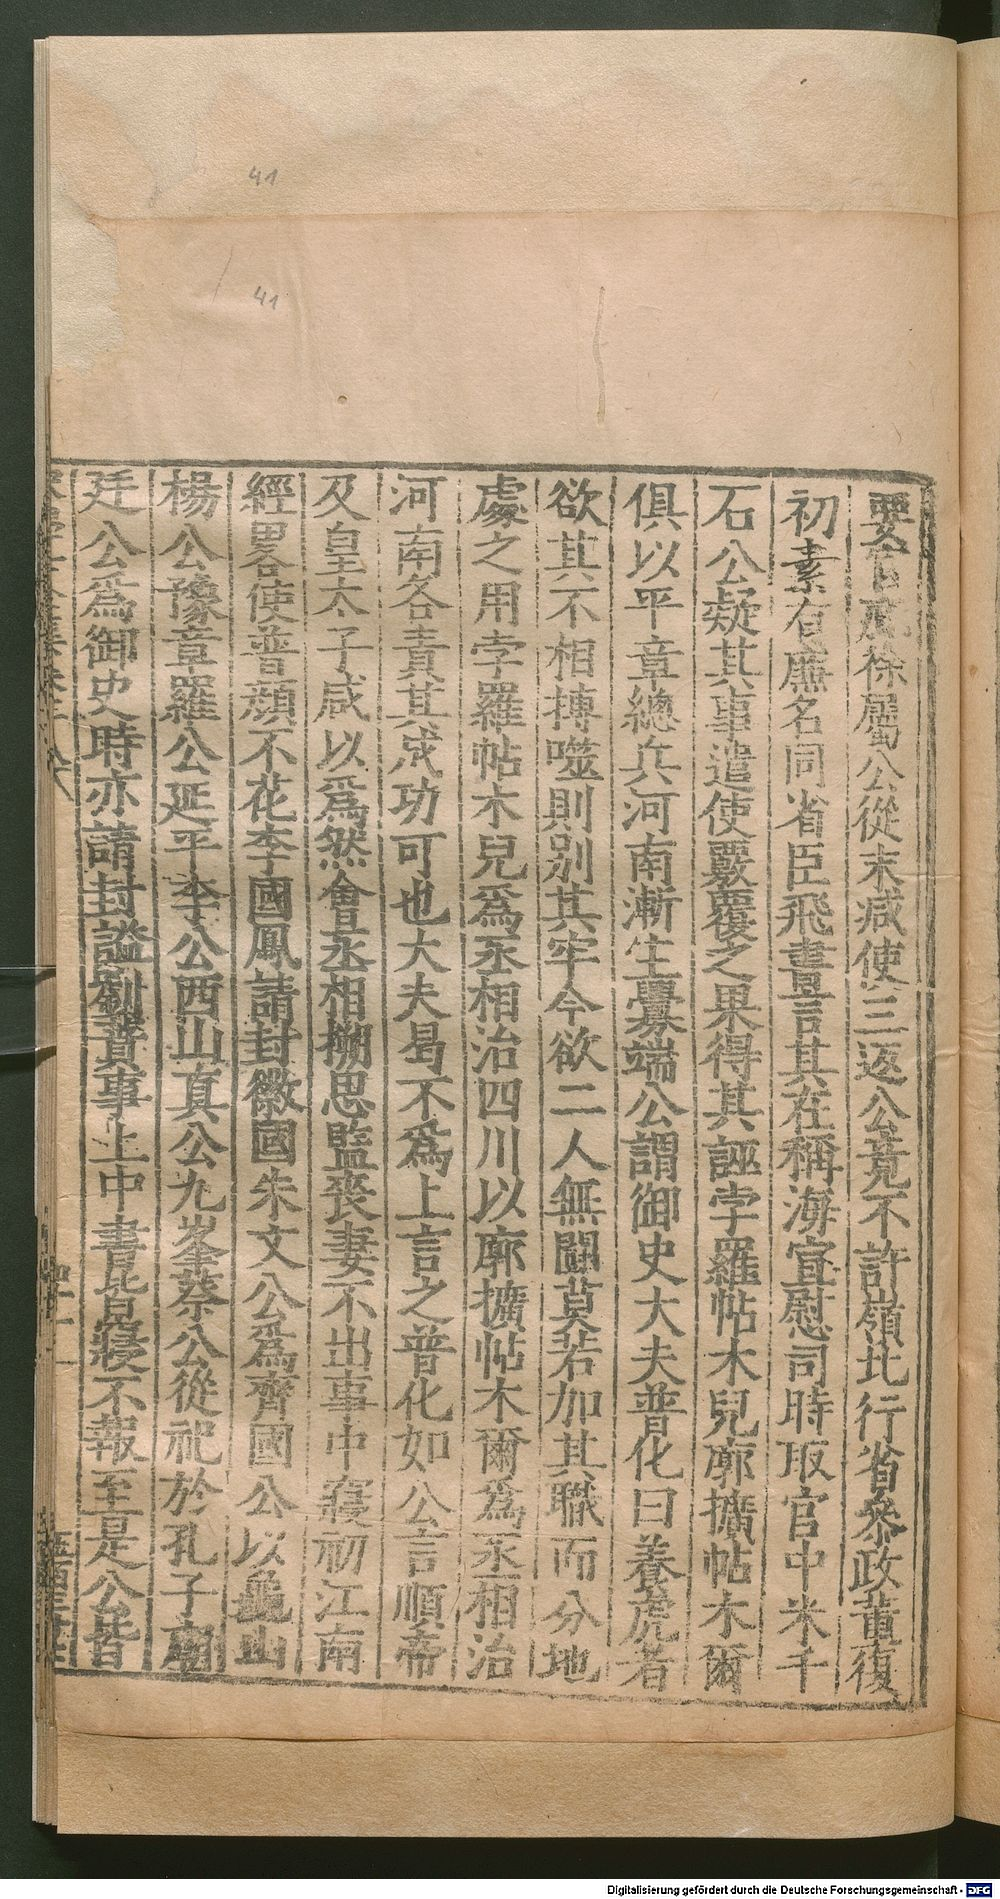 41
41
要官屬公從末減使三返公竟不許嶺北行省叅政董復
初素有廉名同省臣飛書言其在稱海宣慰司時取官中米千
石公疑其事遣使覈覆之果得其誣孛羅帖木兒廓擴帖木爾
俱以平章總兵河南漸生釁端公謂御史大夫普化曰養虎者
欲其不相搏噬則別其牢今欲二人無鬭莫若加其職而分地
處之用孛羅帖木兒爲丞相治四川以廓擴帖木爾爲丞相治
河南各責其成功可也大夫曷不爲上言之普化如公言順帝
及皇太子咸以爲然會丞相搠思監喪妻不出事中寢初江南
經畧使普顔不花李國鳳請封徽國朱文公爲齊國公以龜山
楊公豫章羅公延平李公西山真公九峯蔡公從祀於孔子廟
廷公爲御史時亦請封謚劉蕡事上中書皆寢不報至是公皆
Digitalisierung gefördert durch die Deutsche Forschungsgemeinschaft - DFG